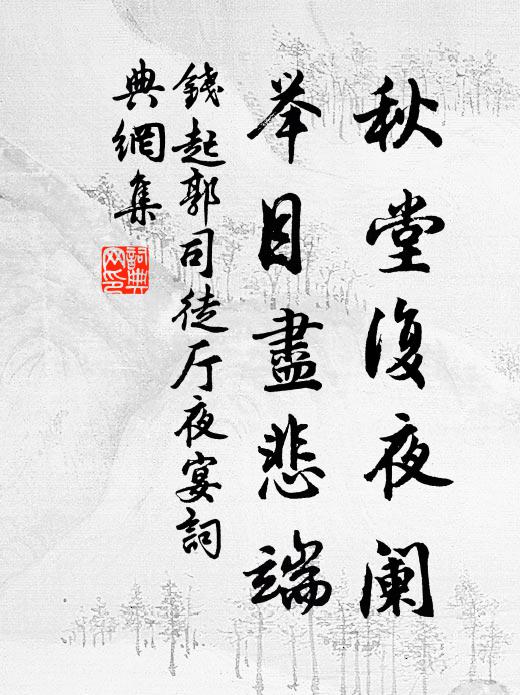 秋堂復夜阑
举目盡悲端
錢起郭司徒厅夜宴詞
典網集
詞典
网印